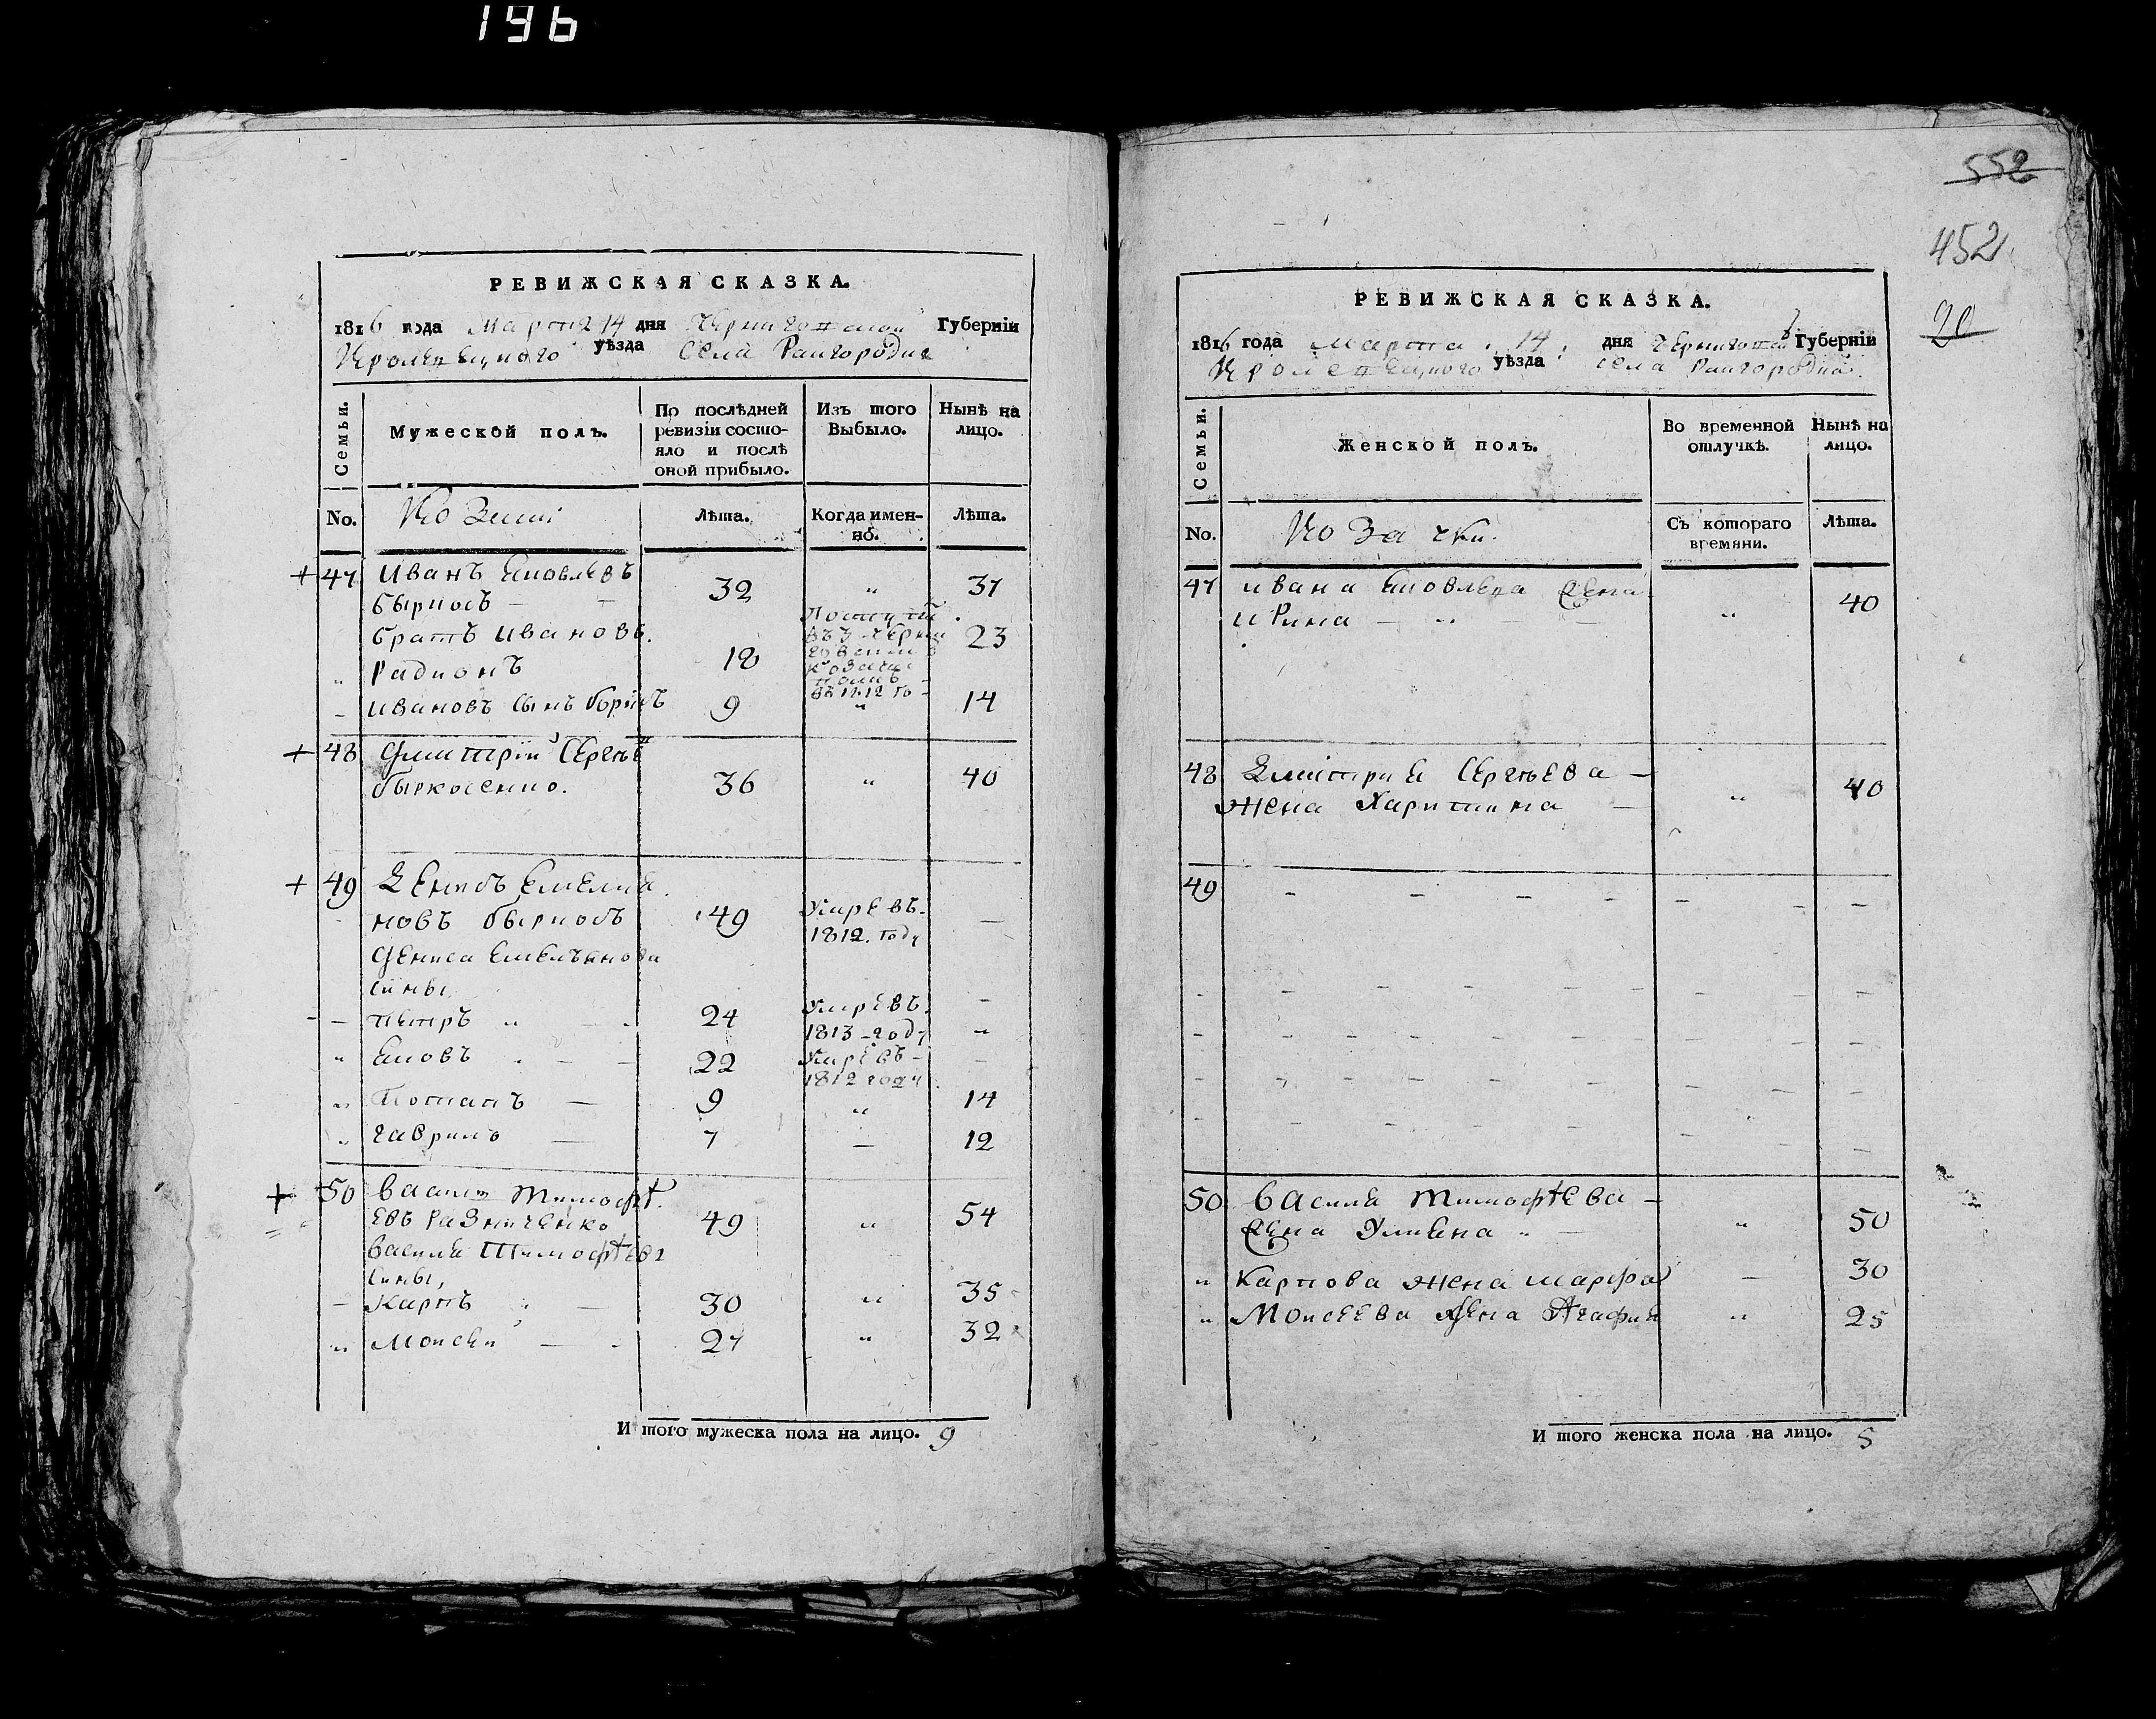 196
РЕВИЖСКАЯ СКАЗКА.
1816 года Марта 14 дня Черниговской Губерніи
Кролевецкого уѣзда Села Райгородка
Семьи.
Мужеской полъ.
По послѣдней ревизіи состояло и послѣ оной прибыло.
Изъ того Выбыло.
Нынѣ на лицо.
No. Козаки Лѣта. Когда именно. Лѣта.
+ 47 Иванъ Яковлевъ
Бирюкъ 32 „ 37
братъ Ивановъ.
„ Радионъ 18 23
въ 1812 го
– Ивановъ Сынъ 9 „ 14
+ 48 Дмитрій Сергѣев
36 „ 40
+ 49 Денисъ Емелия
новъ 49 Умре въ 1812. году —
Дениса Емельянова
Сины
– Петръ „ 24 Умре въ 1813 году –
„ Яковъ 22 Умре въ 1812 году –
„ Потапъ — 9 „ 14
„ Гаврило — 7 — 12
+ 50 Василий Тимофѣ
евъ Разниченко 49 „ 54
Василия Тимофѣева
Сины,
– Карпъ 30 „ 35
„ Моисей 27 „ 32
И того мужеска пола на лицо. 9
552
452
20
РЕВИЖСКАЯ СКАЗКА.
1816 года Марта 14 дня Черниговской Губерніи
Кролевецкого уѣзда села Райгородка.
Семьи.
Женской полъ.
Во временной отлучкѣ.
Нынѣ на лицо.
No. Козачки. Съ котораго времяни. Лѣта.
47 Ивана Яковлева Жена
Ирина „ 40
48 Дмитрия Сергѣева –
жена Харитина — „ 40
49 – – – – – – –
50 Василия Тимофѣева –
Жена Улияна „ „ 50
„ Карпова жена Марфа — 30
„ Моисеева Жена Агафия „ 25
И того женска пола на лицо. 5